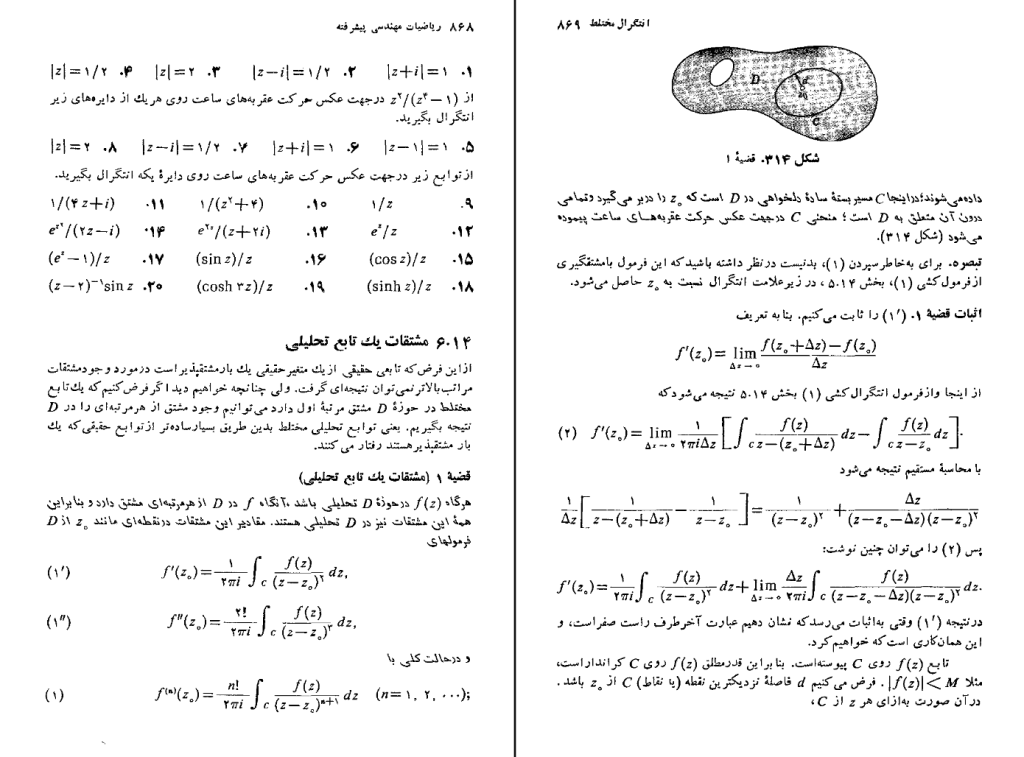 ۸۶۸ ریاضیات مهندسی پیشرفته
۰۱ |z+i|=۱ ۰۲ |z−i|=۱/۲ ۰۳ |z|=۲ ۰۴ |z|=۱/۲
از z²/(z⁴−۱) درجهت عکس حرکت عقربه‌های ساعت روی هریك از دایره‌های زیر
انتگرال بگیرید.
۰۵ |z−۱|=۱ ۰۶ |z+i|=۱ ۰۷ |z−i|=۱/۲ ۰۸ |z|=۲
ازتوابع زیر درجهت عکس حرکت عقربه‌های ساعت روی دایرهٔ یکه انتگرال بگیرید.
۰۹ ۱/z ۰۱۰ ۱/(z²+۴) ۰۱۱ ۱/(۴z+i)
۰۱۲ eᶻ/z ۰۱۳ e²ᶻ/(z+۲i) ۰۱۴ /(۲z−i)
۰۱۵ (cos z)/z ۰۱۶ (sin z)/z ۰۱۷ (eᶻ−۱)/z
۰۱۸ (sinh z)/z ۰۱۹ (cosh ۳z)/z ۰۲۰ (z−۲)⁻¹sin z
۶۰۱۴ مشتقات یك تابع تحلیلی
ازاین فرض‌که تابعی حقیقی ازیك متغیرحقیقی یك بارمشتقپذیراست درمورد وجودمشتقات
مراتب‌بالاترنمی‌توان نتیجه‌ای گرفت. ولی چنانچه خواهیم دید اگرفرض‌کنیم‌که یك‌تابع
مختلط در حوزهٔ D مشتق مرتبهٔ اول دارد می‌توانیم وجود مشتق از هرمرتبه‌ای را در D
نتیجه بگیریم. یعنی توابع تحلیلی مختلط بدین طریق بسیارساده‌تر ازتوابع حقیقی‌که یك
بار مشتقپذیرهستند رفتار می‌کنند.
قضیهٔ ۱ (مشتقات یك تابع تحلیلی)
هرگاه f(z) درحوزهٔ D تحلیلی باشد ،آنگاه f در D ازهرمرتبه‌ای مشتق دارد و بنابراین
همهٔ این مشتقات نیز در D تحلیلی هستند. مقادیر این مشتقات درنقطه‌ای مانند z₀ از D
فرمولهای
(۱′) f′(z₀)=۱/۲πi ∫_C f(z)/(z−z₀)² dz,
(۱″) f″(z₀)=۲!/۲πi ∫_C f(z)/(z−z₀)³ dz,
و درحالت کلی با
(۱) f⁽ⁿ⁾(z₀)=n!/۲πi ∫_C f(z)/(z−z₀)ⁿ⁺¹ dz (n=۱, ۲, ···);
انتگرال مختلط ۸۶۹
D
d
z₀
C
شکل ۳۱۴. قضیهٔ ۱
داده‌می‌شوند؛دراینجا C مسیربستهٔ سادهٔ دلخواهی در D است که z₀ را دربر می‌گیرد وتمامی
درون آن متعلق به D است؛ منحنی C درجهت عکس حرکت عقربه‌هـای ساعت پیموده
می‌شود (شکل ۳۱۴).
تبصره. برای به‌خاطرسپردن (۱)، بدنیست درنظر داشته باشیدکه این فرمول بامشتقگیری
ازفرمول‌کشی (۱)، بخش ۵۰۱۴، در زیرعلامت انتگرال نسبت به z₀ حاصل می‌شود.
اثبات قضیهٔ ۰۱ (۱′) را ثابت می‌کنیم. بنابه تعریف
f′(z₀)= lim_{Δz→۰} (f(z₀+Δz)−f(z₀))/Δz
از اینجا وازفرمول انتگرال‌کشی (۱) بخش ۵۰۱۴ نتیجه می‌شودکه
(۲) f′(z₀)= lim_{Δz→۰} ۱/۲πiΔz [∫_C f(z)/(z−(z₀+Δz)) dz−∫_C f(z)/(z−z₀) dz].
با محاسبهٔ مستقیم نتیجه می‌شود
۱/Δz [۱/(z−(z₀+Δz)) − ۱/(z−z₀)] = ۱/(z−z₀)² + Δz/((z−z₀−Δz)(z−z₀)²)
پس (۲) را می‌توان چنین نوشت:
f′(z₀)=۱/۲πi ∫_C f(z)/(z−z₀)² dz+ lim_{Δz→۰} Δz/۲πi ∫_C f(z)/((z−z₀−Δz)(z−z₀)²) dz.
درنتیجه (۱′) وقتی به‌اثبات می‌رسدکه نشان دهیم عبارت آخرطرف راست صفراست، و
این همان‌کاری است‌که خواهیم‌کرد.
تابع f(z) روی C پیوسته‌است. بنابراین قدرمطلق f(z) روی C کرانداراست،
مثلا |f(z)|<M. فرض می‌کنیم d فاصلهٔ نزدیکترین نقطه (یا نقاط) C از z₀ باشد.
درآن صورت به‌ازای هر z از C،